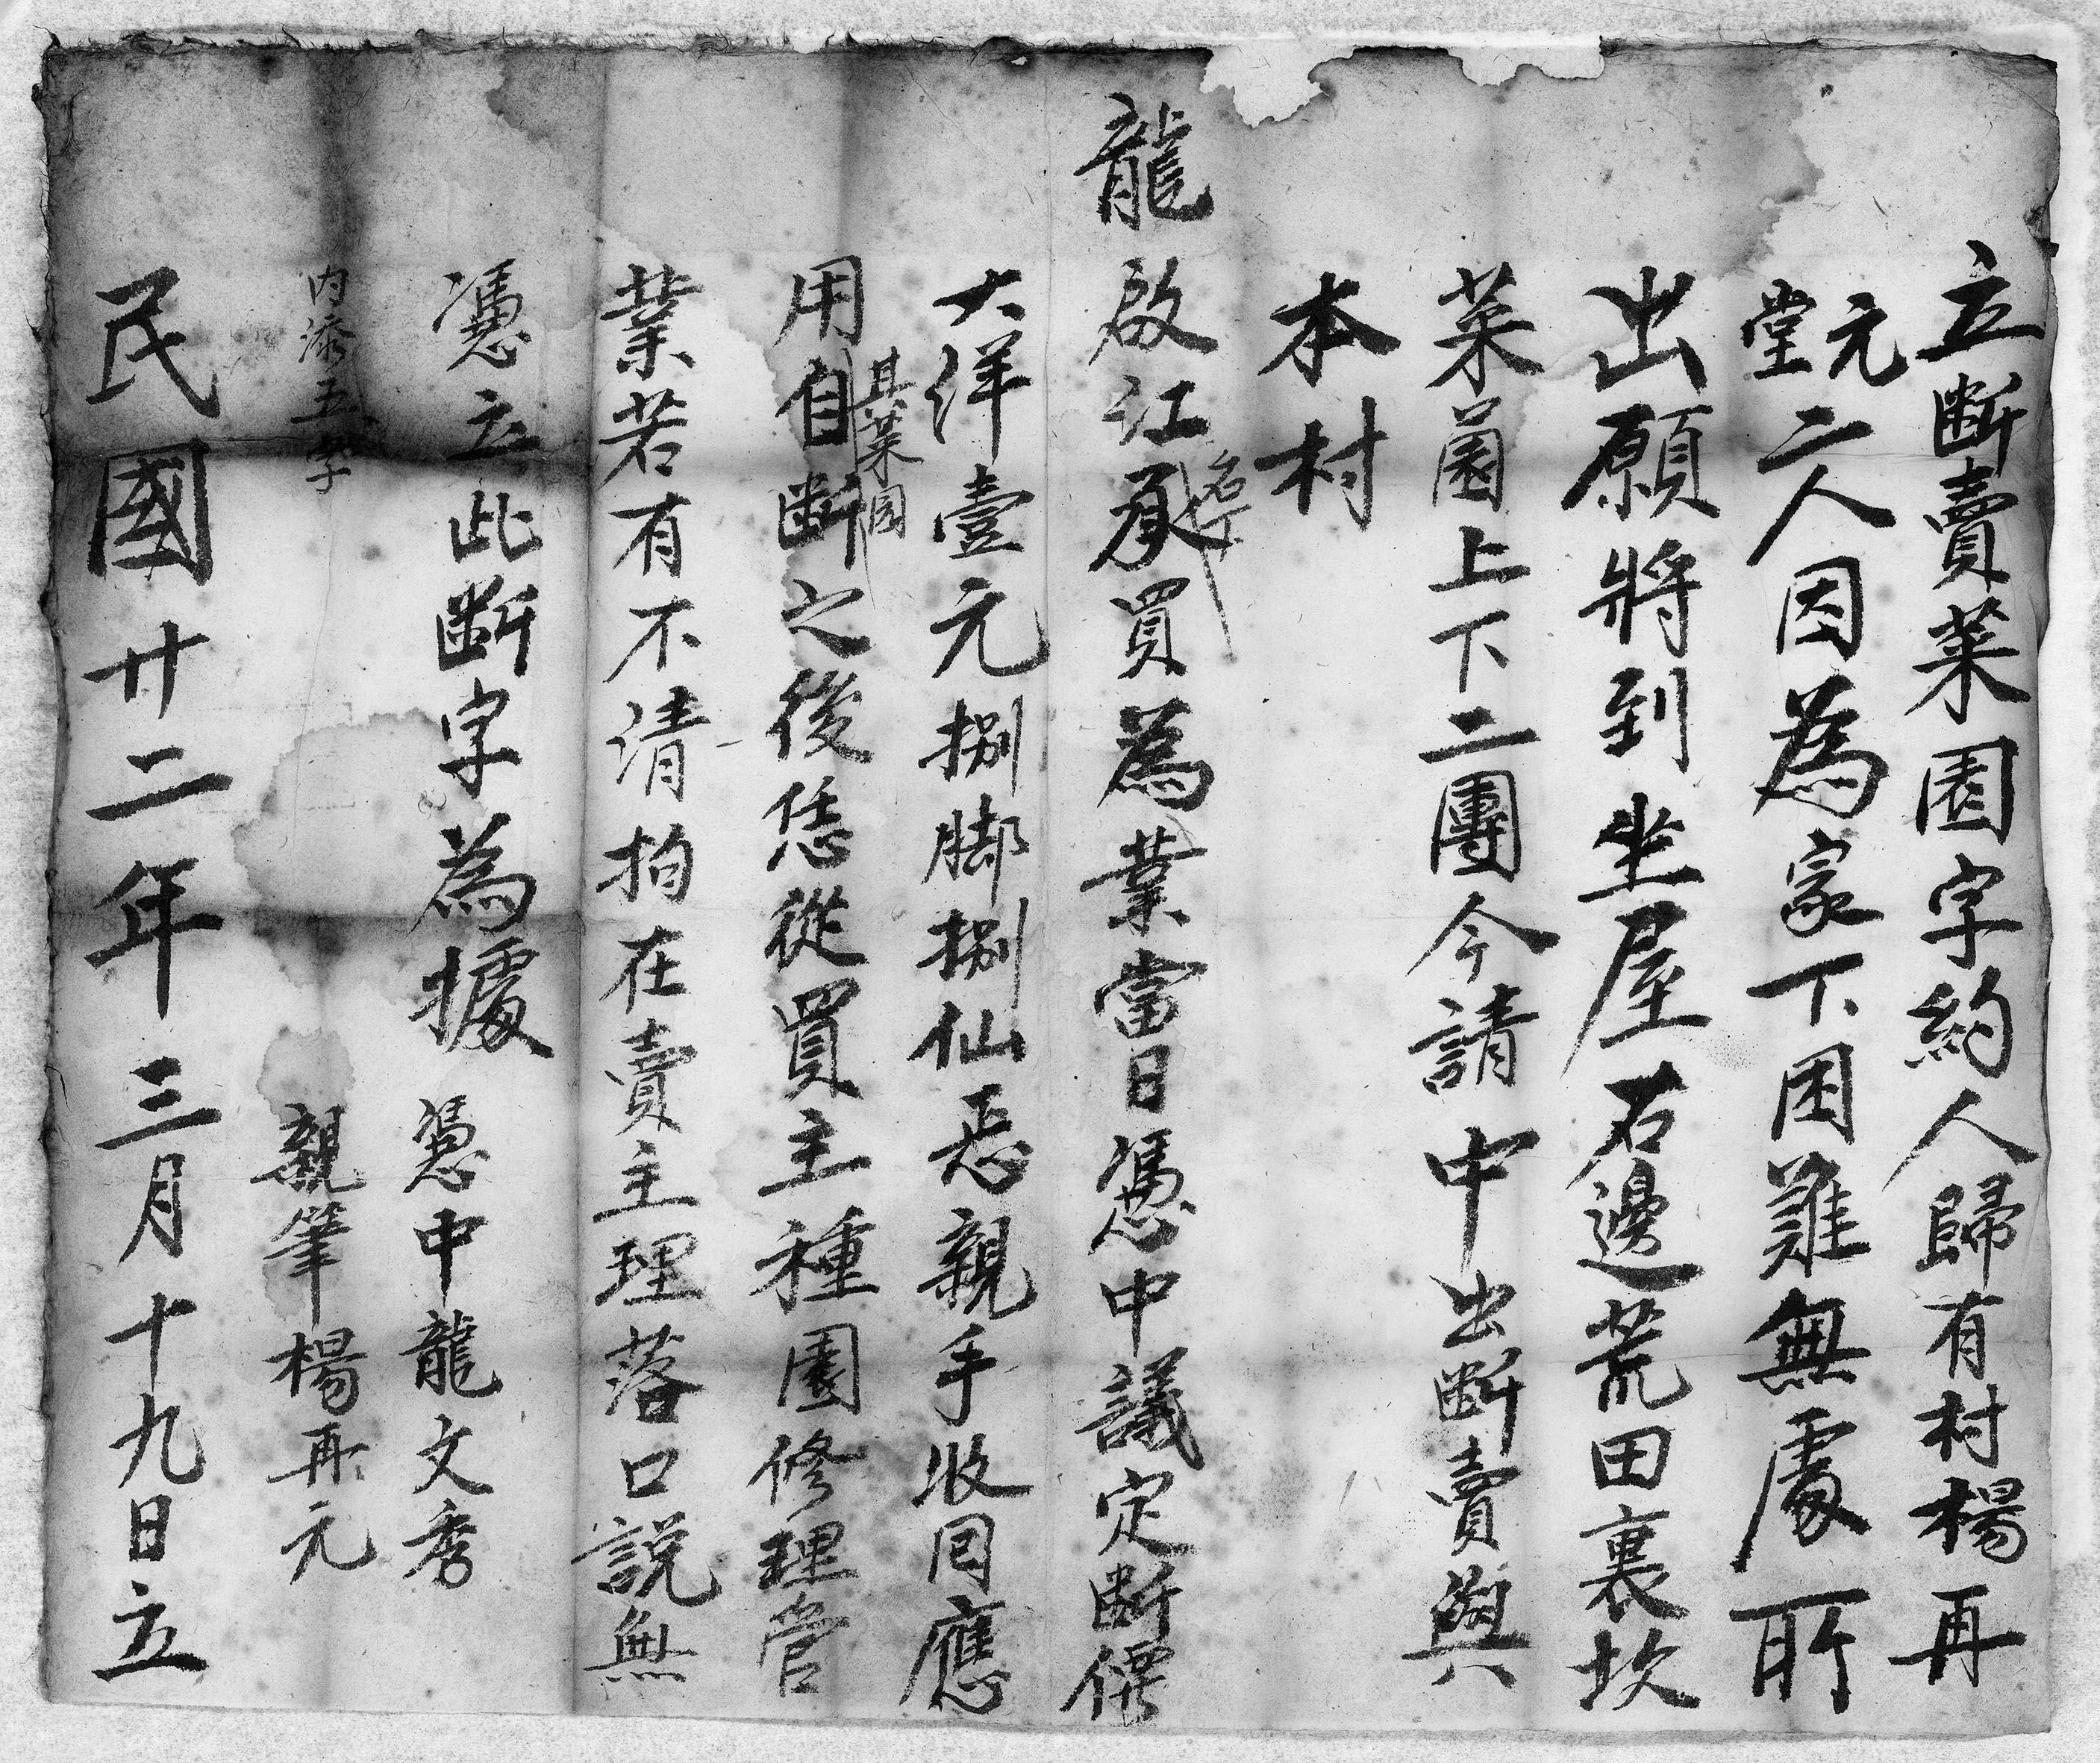 立斷賣菜園字約人歸有村楊再
元堂二人因為家下困難無處所
出願將到坐屋右邊荒田裏坎
菜園上下二團今請中出斷賣與
本村
龍啟江名下承買為業當日憑中議定斷價
大洋壹元捌脚捌仙恶親手收囘應
用其菜園自斷之後恁從買主種園修理管
業若有不清抅在賣主理落口説無
憑立此斷字為據 憑中龍文秀
内添五字 親筆楊再元
民國廿二年三月十九日立